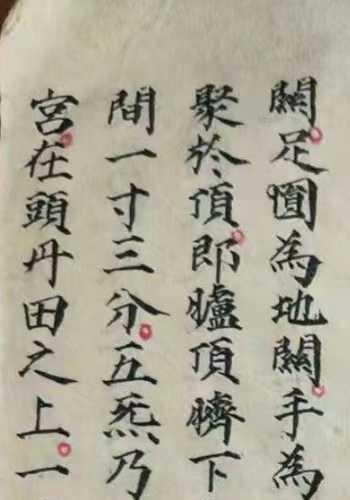 關足圎為地關手為
聚於頂即臚頂臍下
間一寸三分五炁乃
宮在頭丹田之上一